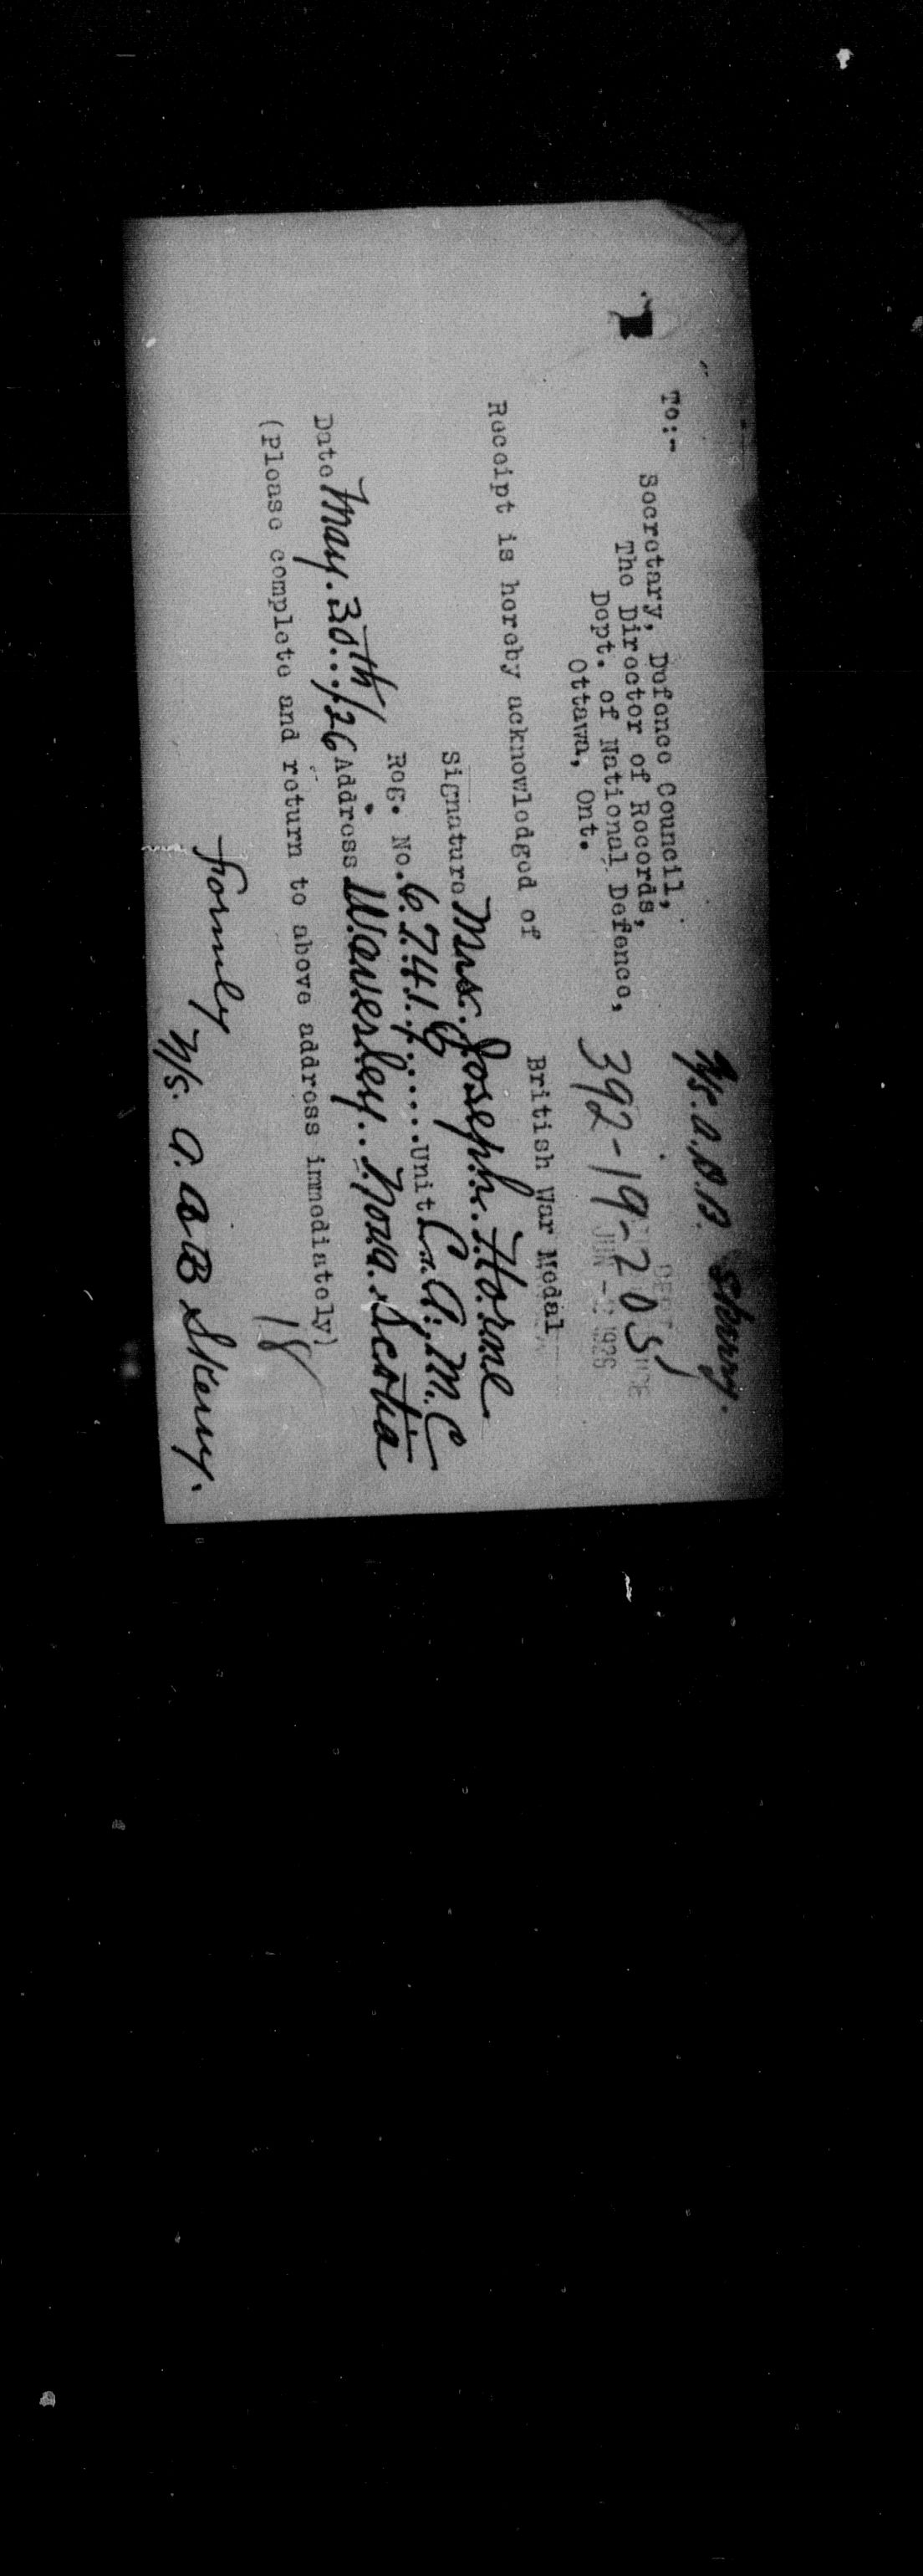 N/S. A.B.B. Skerry.
To:- Secretary, Defence Council,
The Director of Records,
Dept. of National Defence,
Ottawa, Ont.
392-19-205
JUN - 2 1926
Receipt is hereby acknowledged of
British War Medal
Signature Mrs. Joseph. Horne
Reg. No. 67416 Unit C.A.M.C
Date May. 30th/26 Address Waverley. Nova. Scotia
(Please complete and return to above address immediately)
18
formely
N/S. A. B B Skerry.